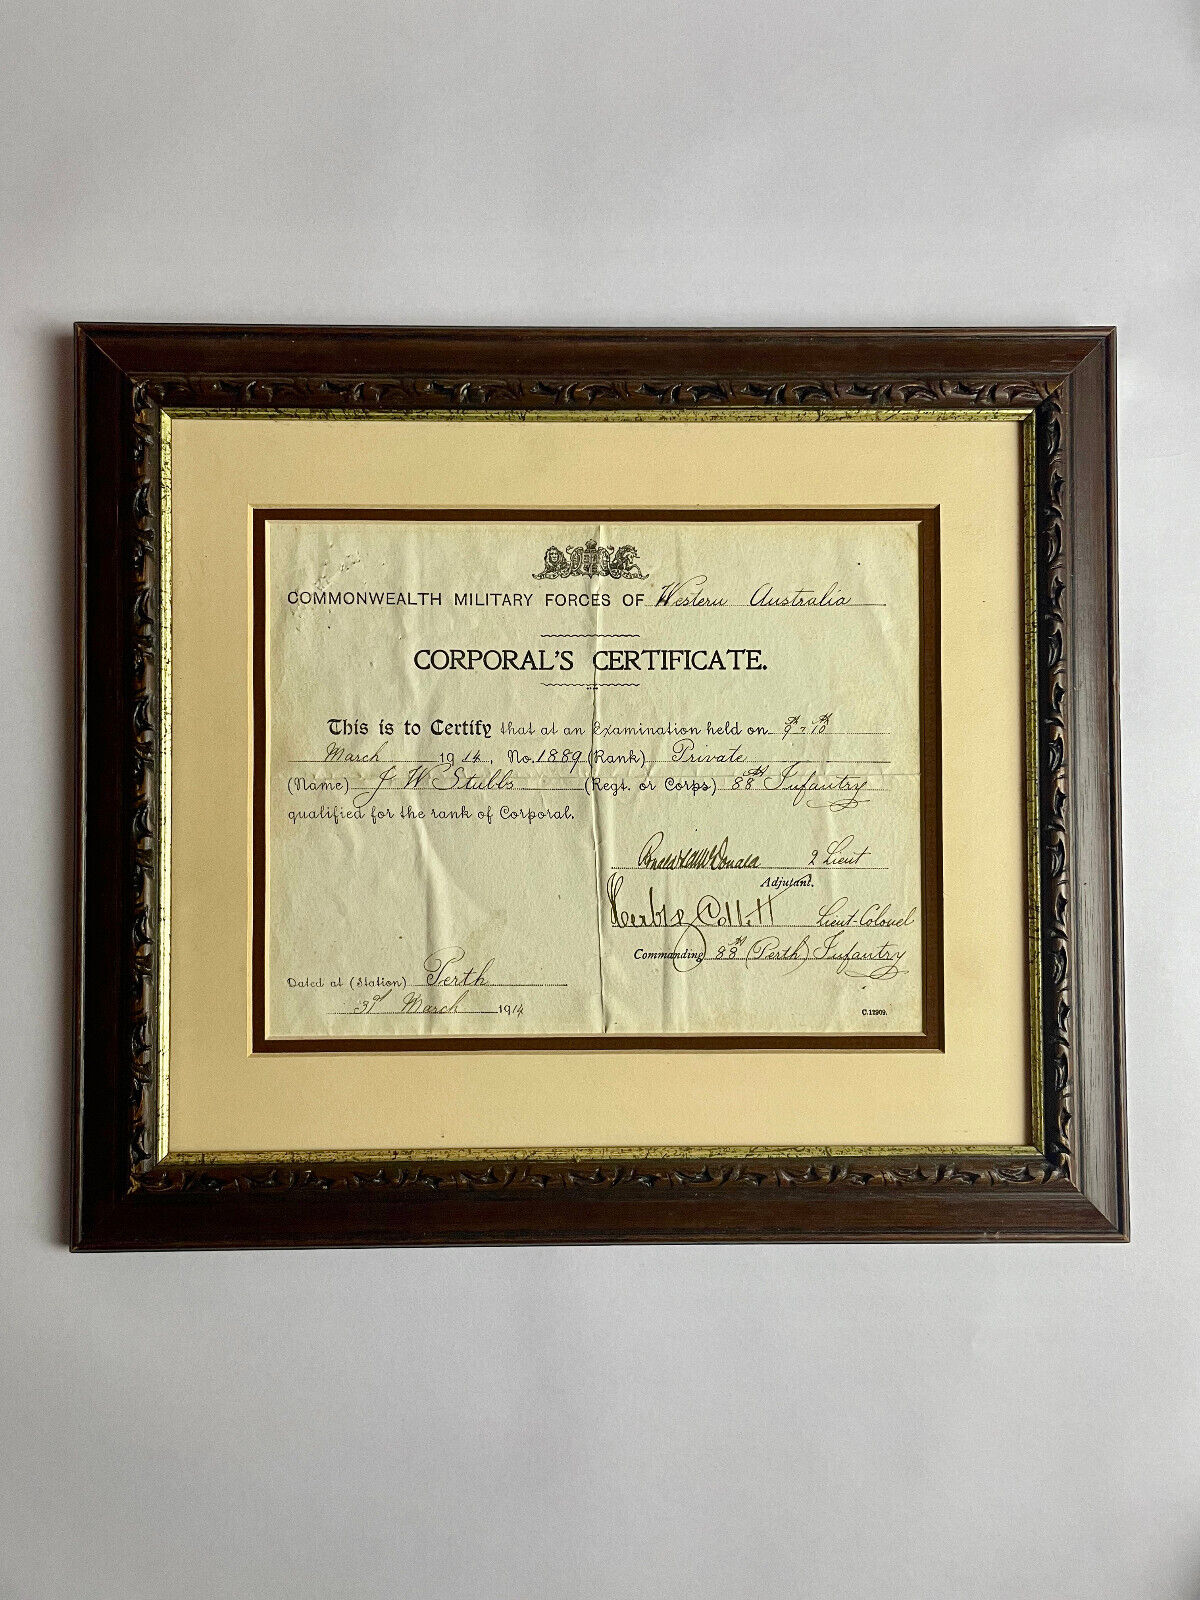 COMMONWEALTH MILITARY FORCES OF Western Australia
CORPORAL'S CERTIFICATE.
This is to Certify that at an Examination held on 9th - 10th
March 1914, No. 1889 (Rank) Private
(Name) J W Stubbs (Regt. or Corps) 88th Infantry
qualified for the rank of Corporal.
McDonald 2 Lieut
Adjutant.
Herbt Collett Lieut-Colonel
Commanding 88th (Perth) Infantry
Dated at (Station) Perth
31st March 1914
C.12909.